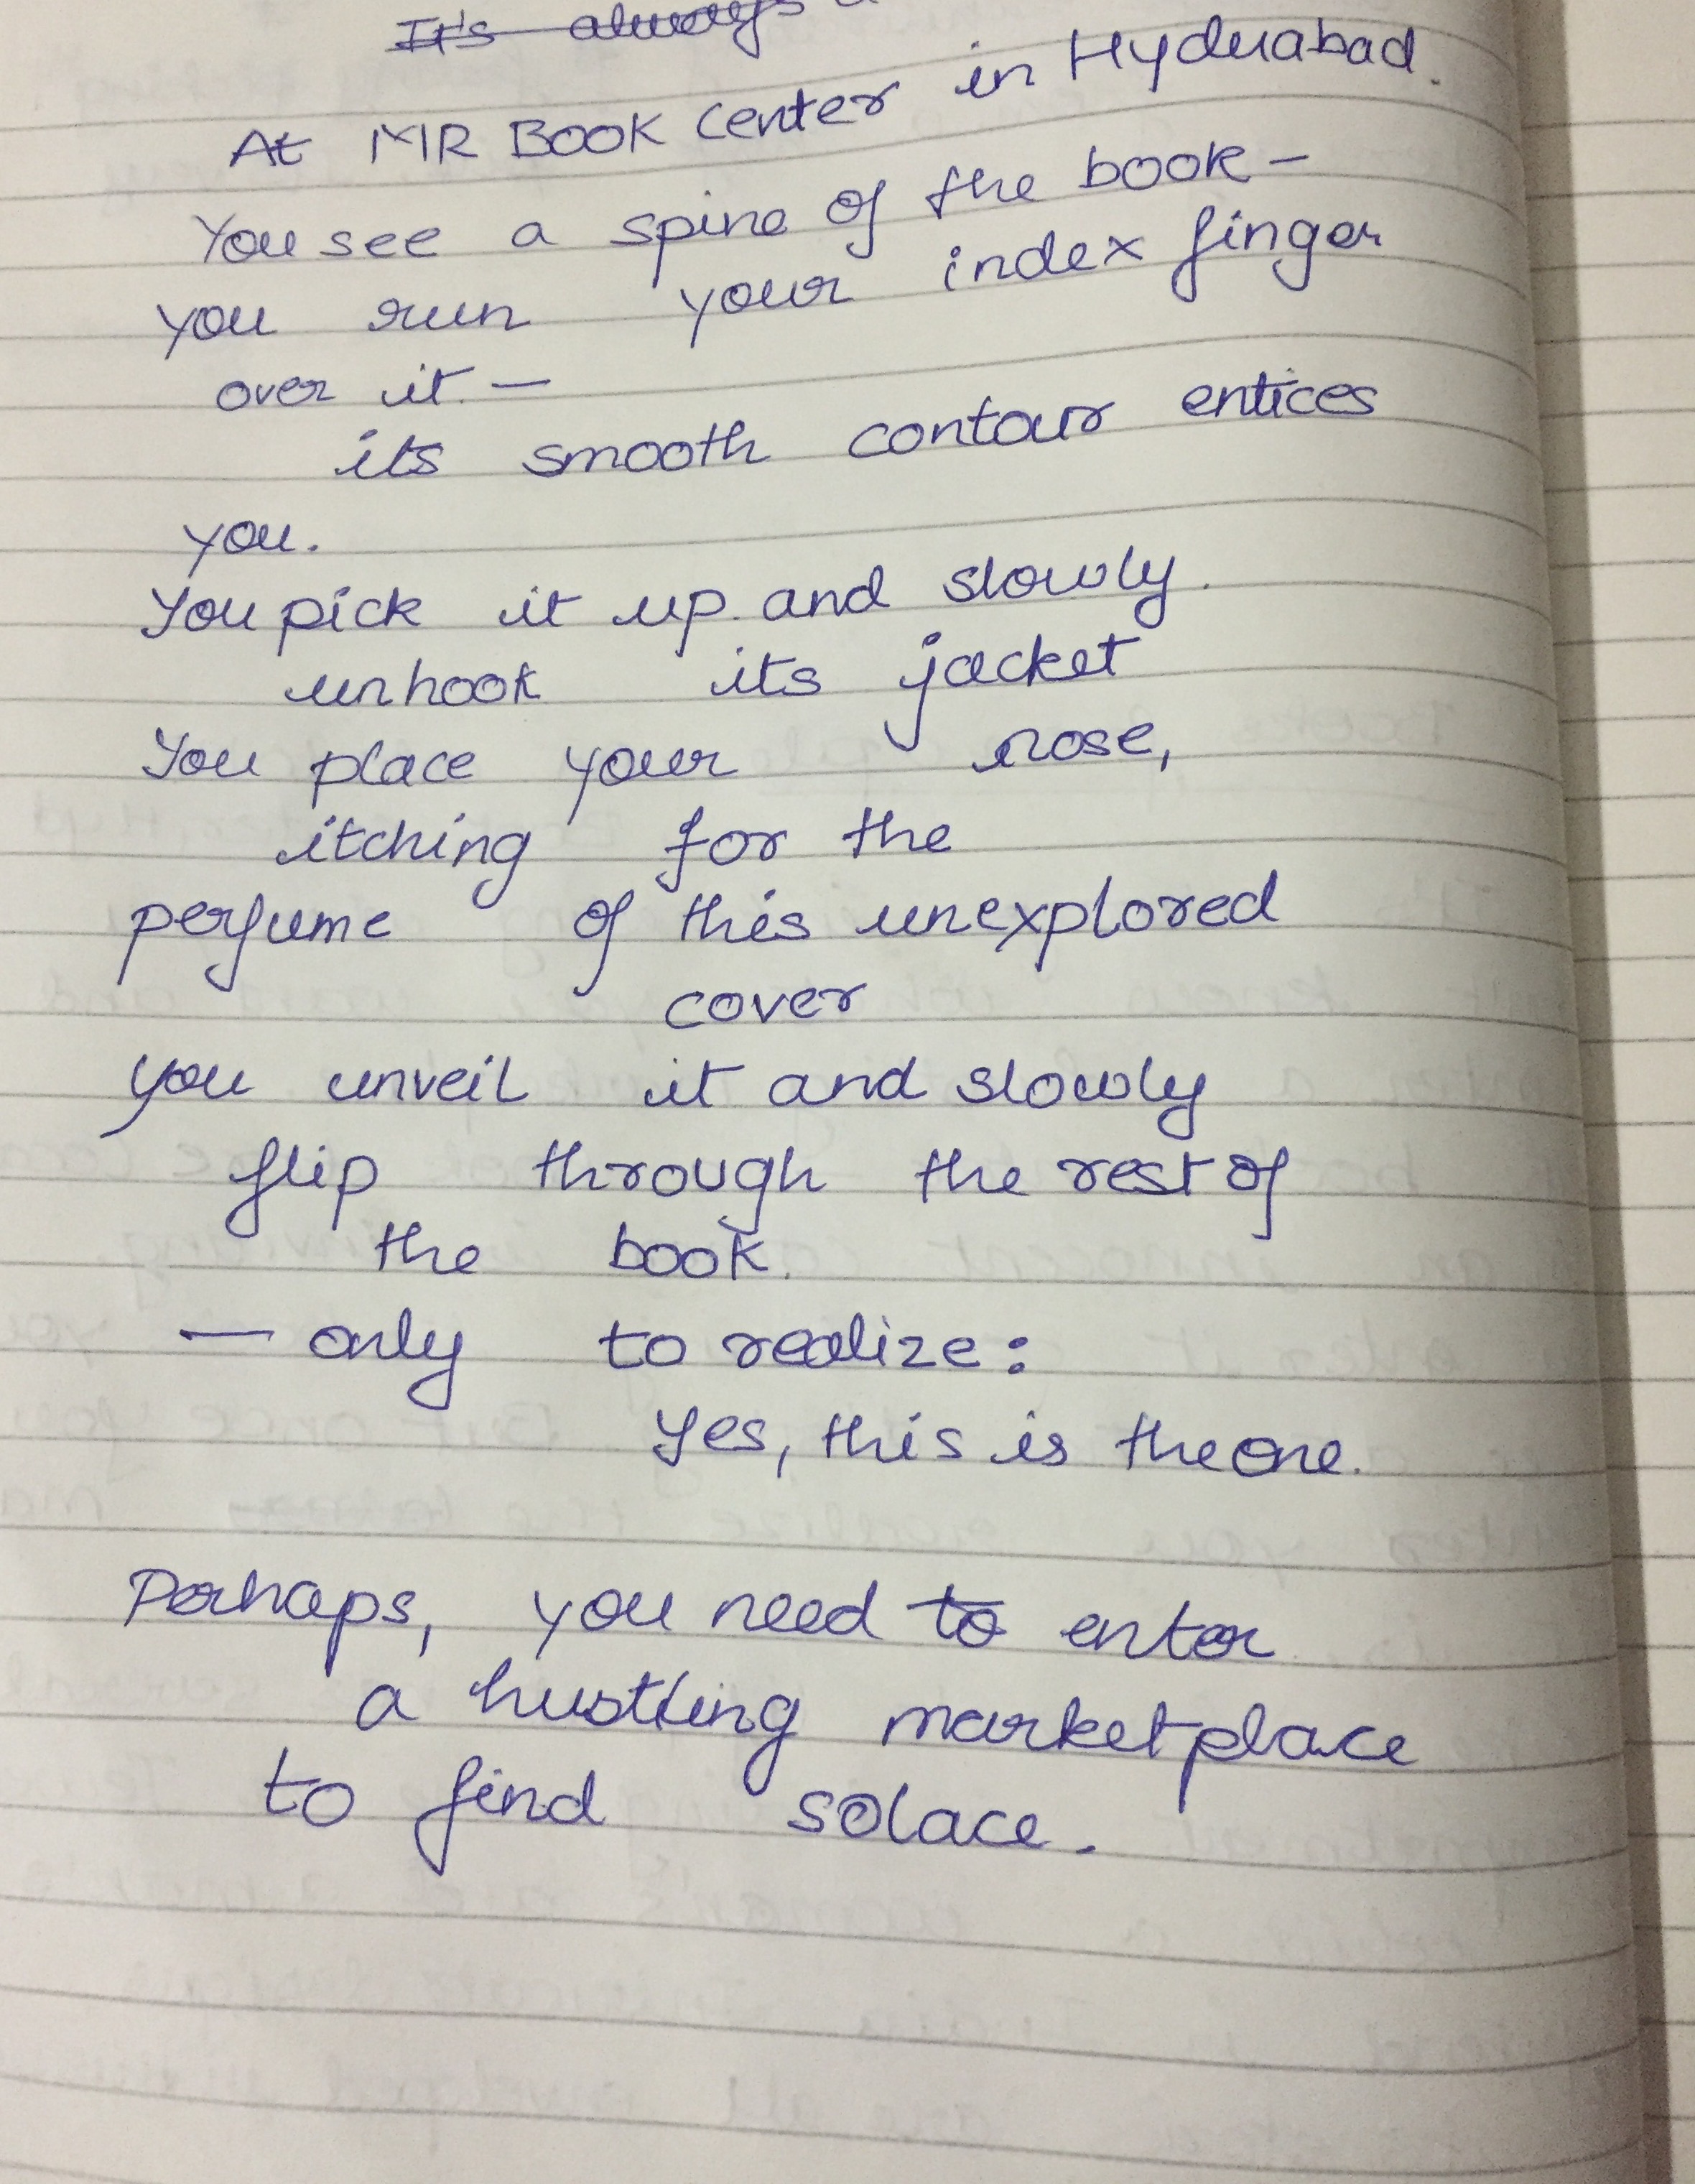 It's always
At MR BOOK Center in Hyderabad.
You see a spine of the book —
you run your index finger
over it. —
its smooth contour entices
you.
You pick it up and slowly
unhook its jacket
You place your nose,
itching for the
perfume of this unexplored
cover
you unveil it and slowly
flip through the rest of
the book.
— only to realize:
Yes, this is the one.
Perhaps, you need to enter
a hustling marketplace
to find solace.